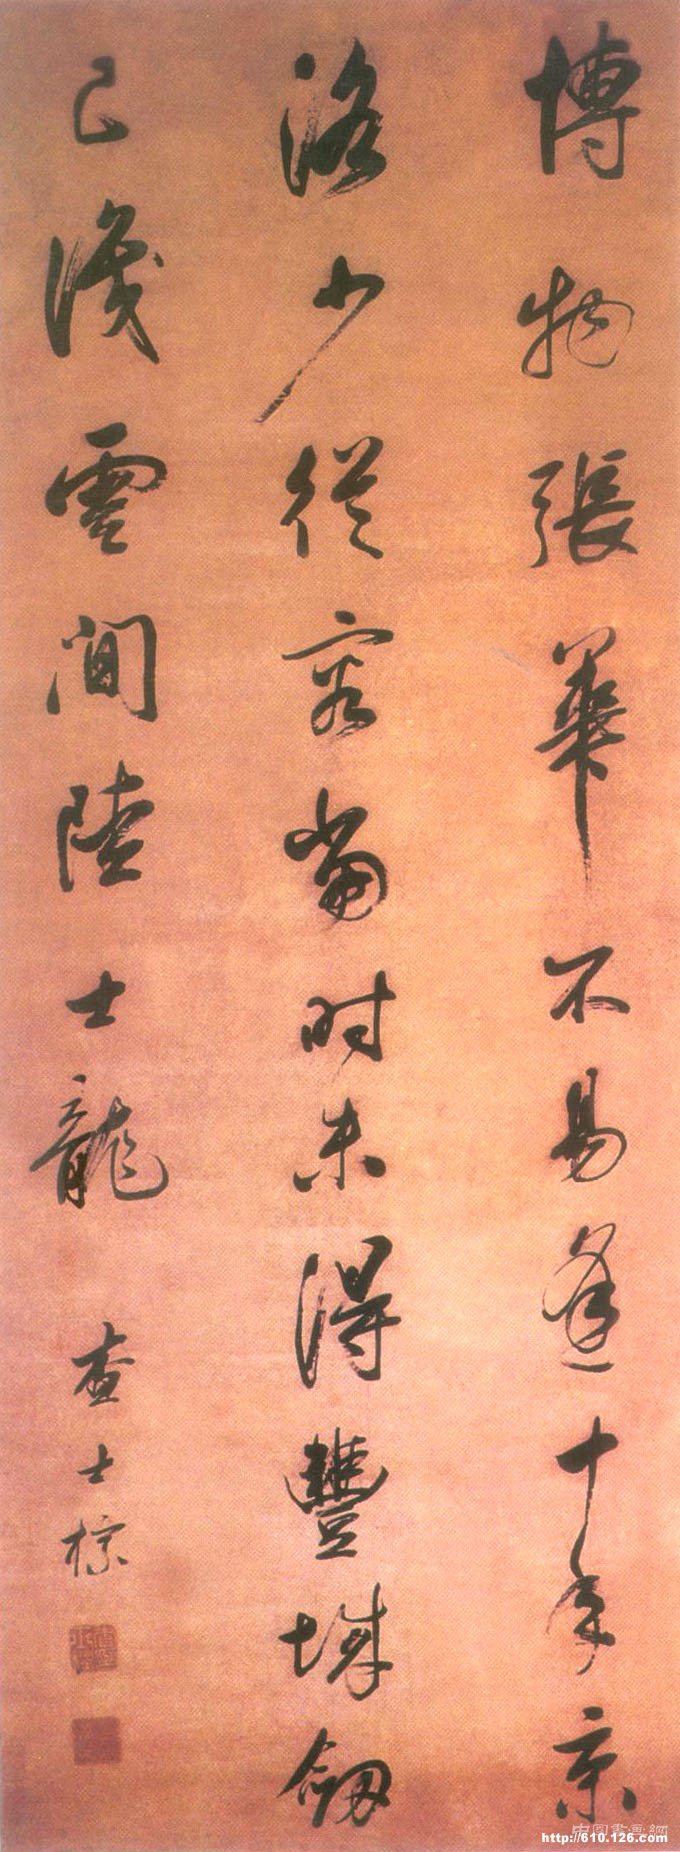 博物張華不易逢十年京
洛少從容當時未得豐城劒
已識雲間陸士龍
查士標
中國書畫網
http://610.126.com